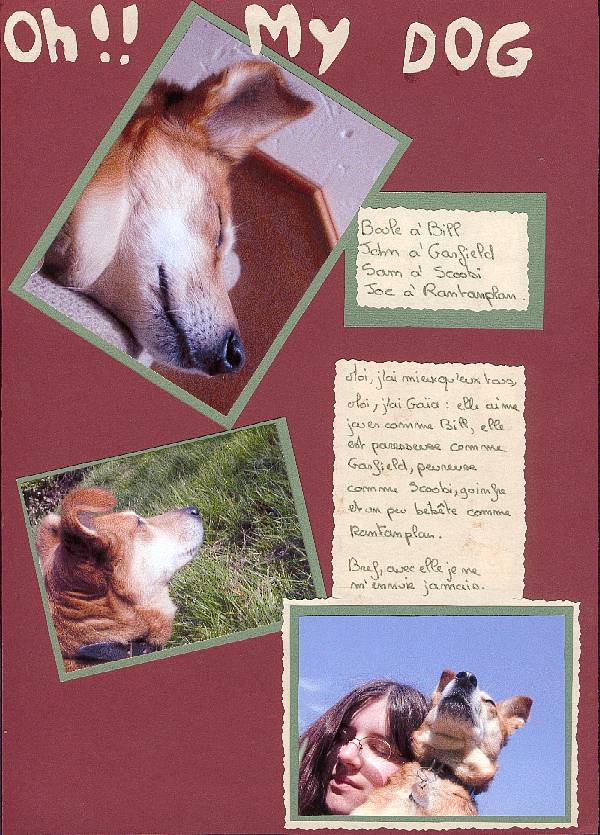 Oh!! My DOG
Boule a Bill
John a Garfield
Sam a Scoobi
Joe a Rantanplan.
Moi, j'ai mieux qu'eux tous,
Moi, j'ai Gaïa : elle aime
jouer comme Bill, elle
est paresseuse comme
Garfield, peureuse
comme Scoobi, goinfre
et un peu bebête comme
Rantanplan.
Bref, avec elle je ne
m'ennuie jamais.